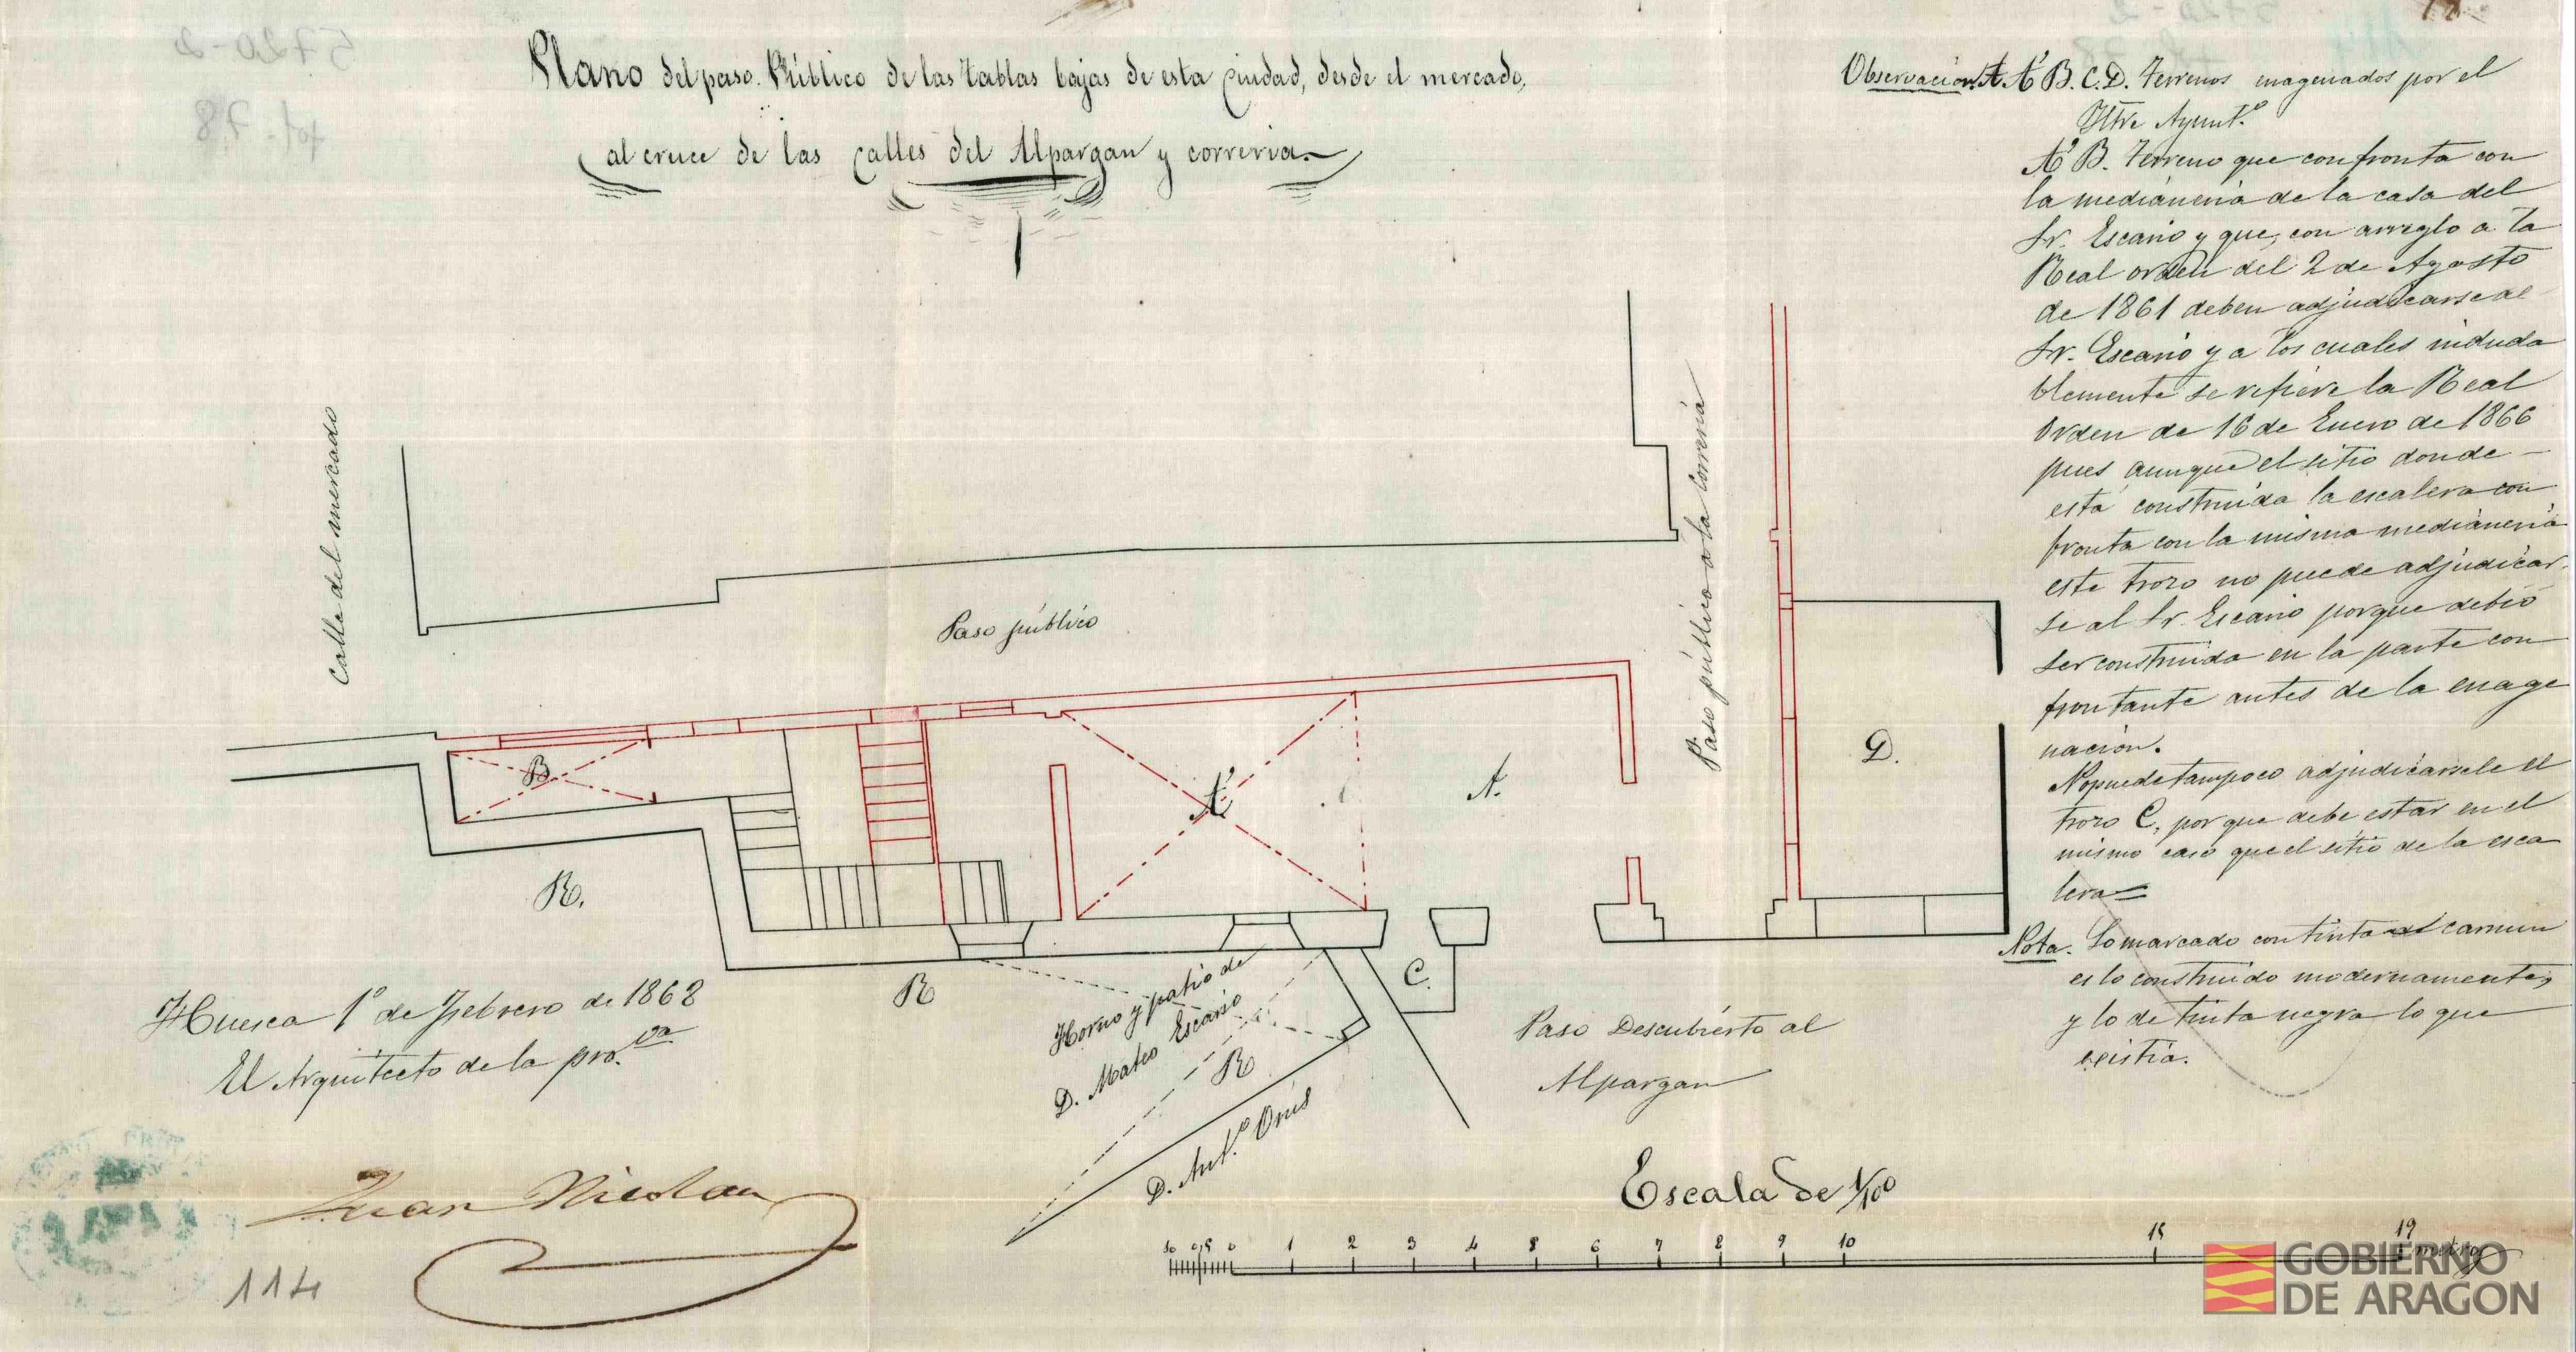 Plano del paso Público de las tablas bajas de esta Ciudad, desde el mercado,
al cruce de las calles del Alpargan y correria.
Observacion. A. A' B. C. D. Terrenos enagenados por el
Iltre Ayuntº
A' B. Terreno que confronta con
la medianeria de la casa del
Sr. Escario y que, con arreglo a la
Real orden del 2 de Agosto
de 1861 deben adjudicarse al
Sr. Escario y a los cuales induda
blemente se refiere la Real
Orden de 16 de Enero de 1866
pues aunque el sitio donde
está construida la escalera con
fronta con la misma medianeria
este trozo no puede adjudicar-
se al Sr. Escario porque debió
ser construida en la parte con
frontante antes de la enage
nacion.
No puede tampoco adjudicarsele el
trozo C, por que debe estar en el
mismo caso que el sitio de la esca
lera=
Nota. Lo marcado con tinta carmin
es lo construido modernamente,
y lo de tinta negra lo que
existia.
Calle del mercado
Paso público
Paso público a la Correria
B
A'
A.
D.
R.
R
C.
Horno y patio de
D. Mateo Escario
R
D. Antº Oris
Paso Descubierto al
Alpargan
Huesca 1º de Febrero de 1868
El Arquitecto de la pro.va
Juan Nicolau
114
Escala de 1/100
10 0,5 0 1 2 3 4 5 6 7 8 9 10 15 19 metros
GOBIERNO
DE ARAGON
5720-2
fol-78